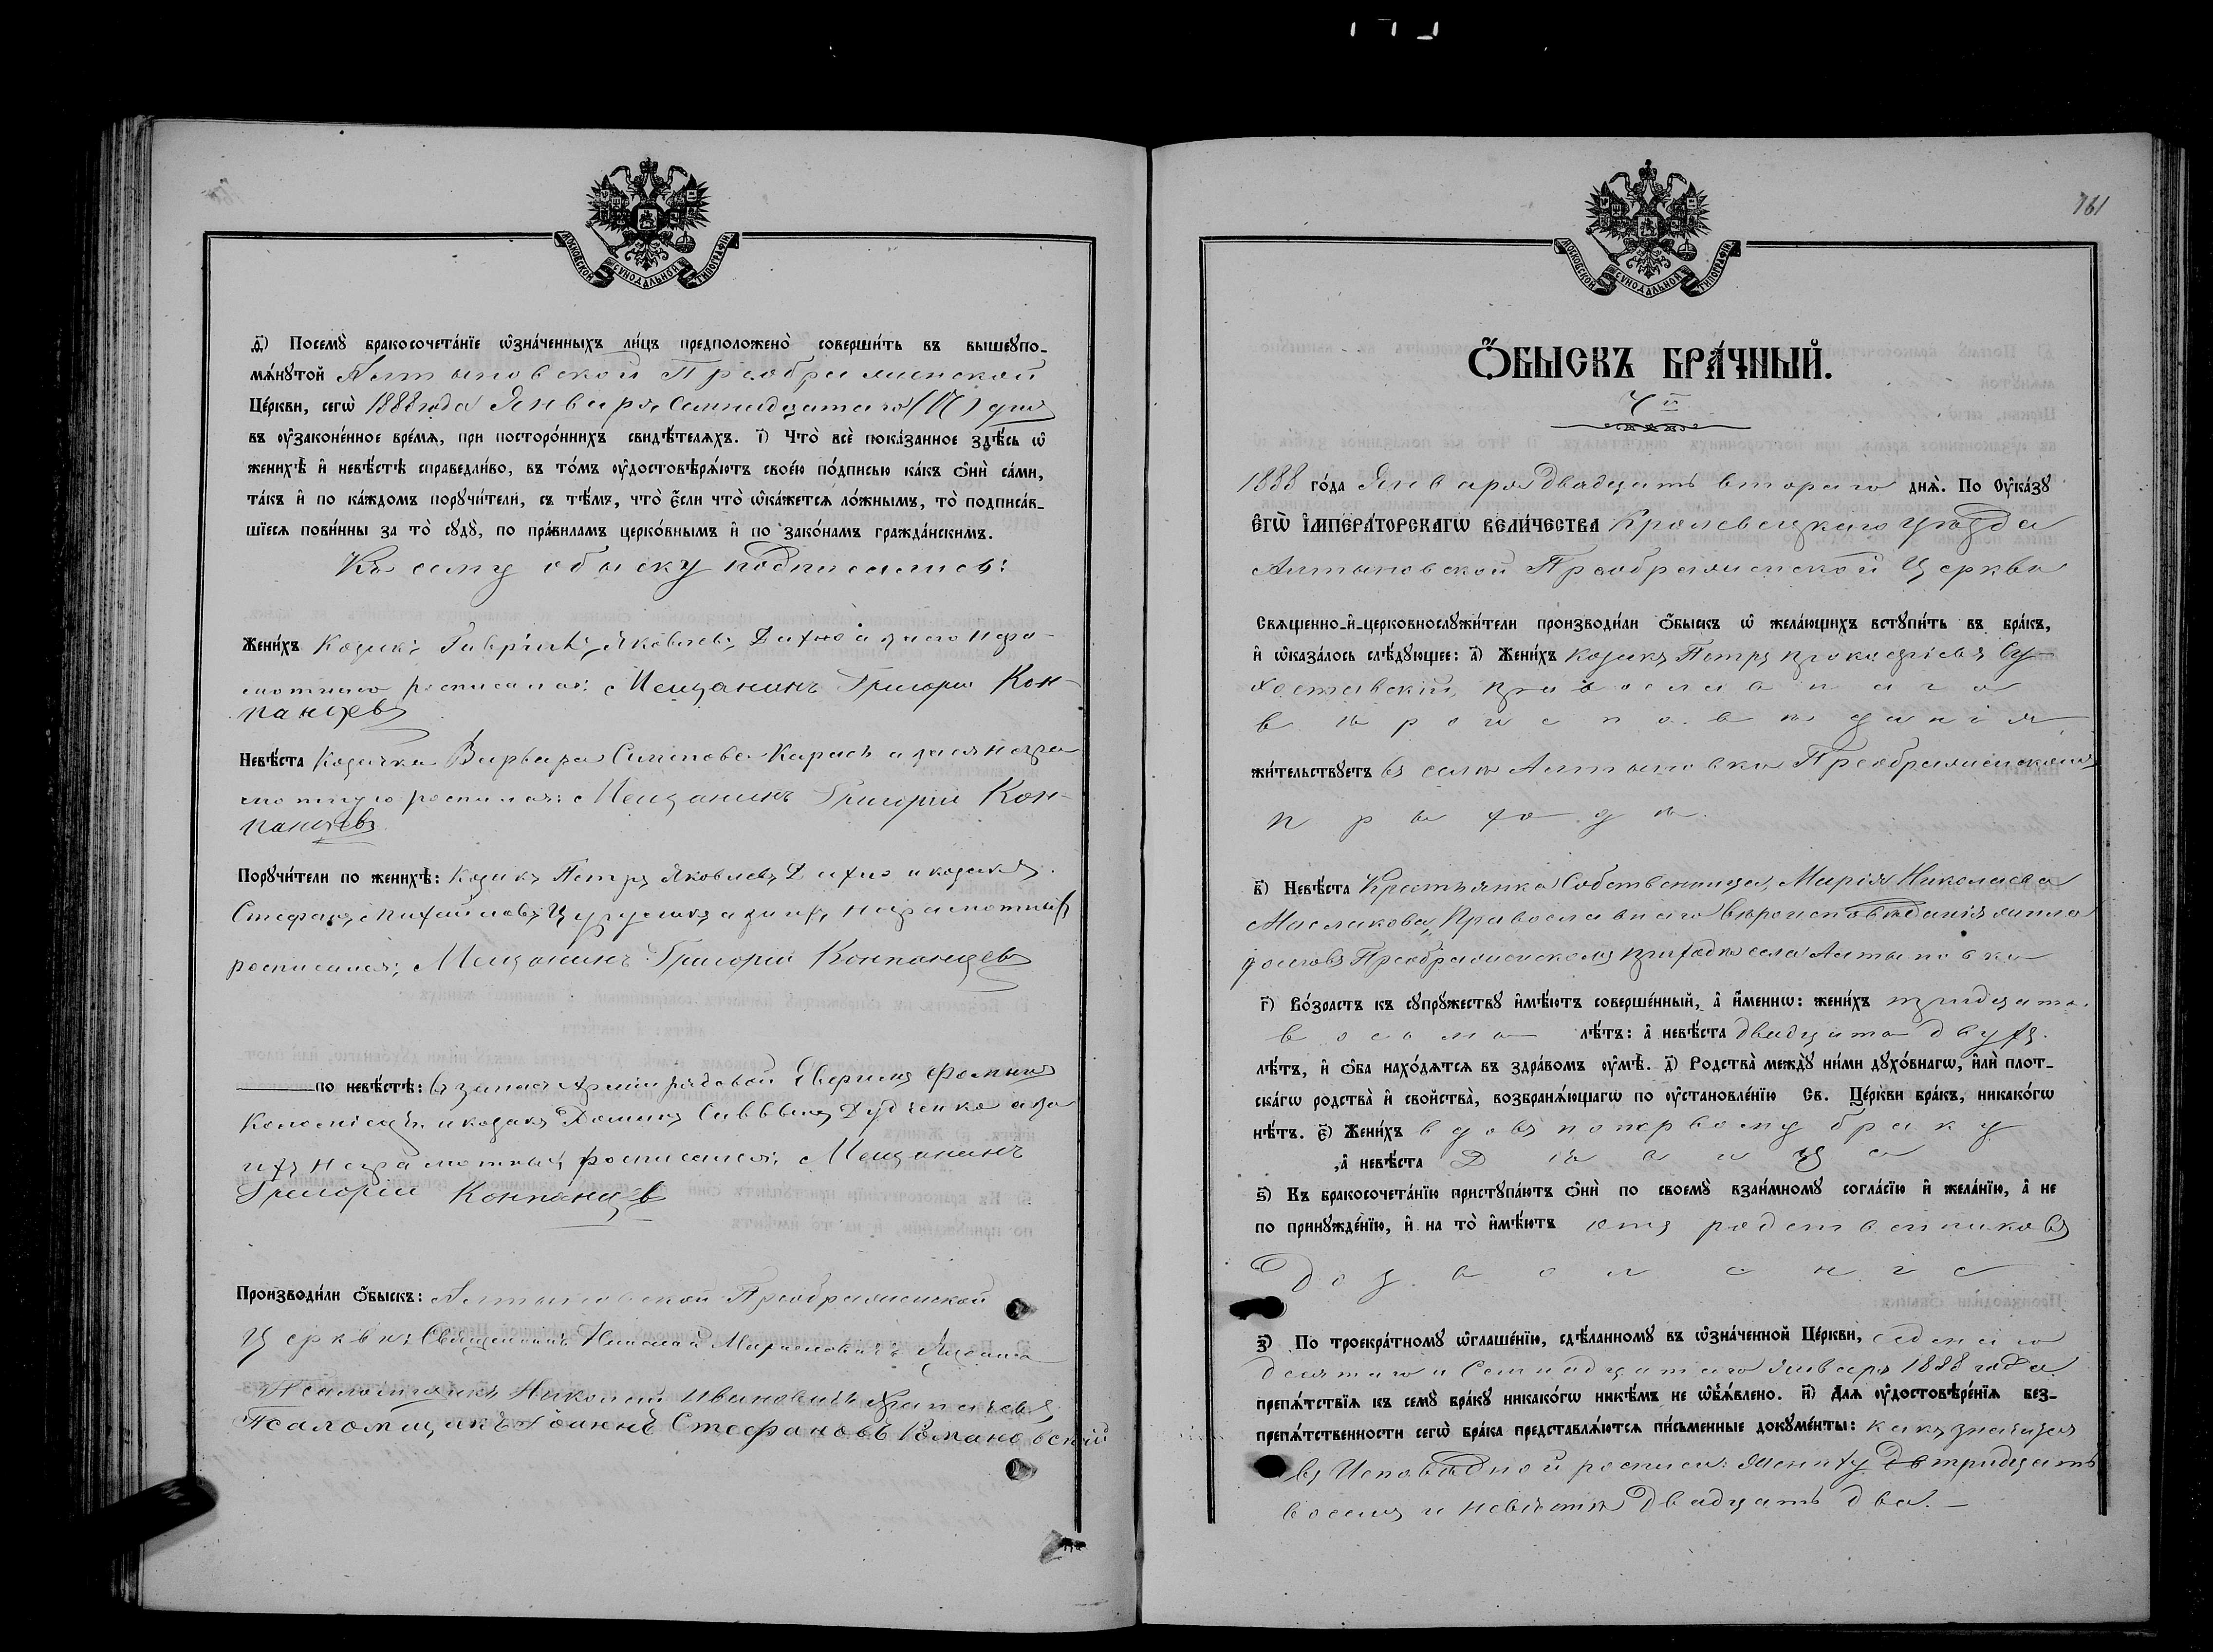 МОСКОВСКОЙ СѴНОДАЛЬНОЙ ТИПОГРАФІИ
ѳ҃) Посемꙋ̀ бракосочета́нїе ѡ҆зна́ченныхъ ли́цъ предположено̀ соверши́ть въ вышеꙋпо-
мѧ́нꙋтой Алтыновской Преображенской
Це́ркви, сегѡ̀ 1888 года Января Семнадцатаго (17) дня
въ ᲂу҆законе́нное вре́мѧ, при посторо́ннихъ свидѣ́телѧхъ. і҃) Что̀ всѐ пока́занное здѣ́сь ѡ҆
женихѣ̀ и҆ невѣ́стѣ справедли́во, въ то́мъ ᲂу҆достовѣрѧ́ютъ свое́ю по́дписью ка́къ ѻ҆нѝ са́ми,
та́къ и҆ по ка́ждомъ порꙋчи́тели, съ тѣ́мъ, что̀ є҆́сли что̀ ѡ҆ка́жетсѧ ло́жнымъ, то̀ подписа́в-
шїесѧ пови́нны за то̀ сꙋдꙋ̀, по пра́виламъ церко́внымъ и҆ по зако́намъ гражда́нскимъ.
Къ сему обыску подписались:
Жени́хъ Козакъ Гавріилъ Яковлевъ Дихно а за него негра-
мотнаго росписался: Мещанинъ Григорій Кон-
панцевъ
Невѣ́ста Козачка Варвара Карась а за ея негра
мотную росписался: Мещанинъ Григорій Кон-
панцевъ
Порꙋчи́тели по женихѣ̀: Козакъ Петръ Яковлевъ Дихно и козакъ
Стефанъ Михайловъ а за ихъ неграмотныхъ
росписался: Мещанинъ Григорій Конпанцевъ
по невѣ́стѣ: въ запасѣ Арміи рядовой Фоминъ
и козакъ Дудченко а за
ихъ неграмотныхъ росписался: Мещанинъ
Григорій Конпанцевъ
Производи́ли ѻ҆́быскъ: Алтыновской Преображенской
Церкви: Священникъ Николай
Псаломщикъ Николай Ивановичъ
Псаломщикъ Іоаннъ Стефановъ Романовскій
761
МОСКОВСКОЙ СѴНОДАЛЬНОЙ ТИПОГРАФІИ
Ѻ҆́БЫСКЪ БРА́ЧНЫЙ.
7й
1888 го́да Января двадцать втораго днѧ̀. По Оу҆ка́зꙋ
Є҆ГѠ̀ И҆МПЕРА́ТОРСКАГѠ ВЕЛИ́ЧЕСТВА Кролевецкаго уѣзда
Алтыновской Преображенской Церкви
Свѧщенно-и҆-церковнослꙋжи́тели производи́ли ѻ҆́быскъ ѡ҆ жела́ющихъ встꙋпи́ть въ бра́къ,
и҆ ѡ҆каза́лось слѣ́дꙋющее: а҃) Жени́хъ козакъ Петръ Прокофіевъ Су-
хоставскій, православнаго
вѣроисповѣданія
жи́тельствꙋетъ въ селѣ Алтыновки Преображенскомъ
приходѣ.
в҃) Невѣ́ста Крестьянка Собственница, Марія Николаева
Маслакова, Православнаго вѣроисповѣданія жила
досихъ Преображенскомъ приходѣ села Алтыновки
г҃) Во́зрастъ къ сꙋпрꙋ́жествꙋ и҆мѣ́ютъ соверше́нный, а҆ и҆́меннѡ: жени́хъ тридцати
восьми лѣ́тъ: а҆ невѣ́ста двадцати двухъ
лѣ́тъ, и҆ ѻ҆́ба нахо́дѧтсѧ въ здра́вомъ ᲂу҆мѣ̀. д҃) Родства̀ междꙋ̀ ни́ми дꙋхо́внагѡ, и҆лѝ плот-
ска́гѡ родства̀ и҆ сво́йства̀, возбранѧ́ющагѡ по ᲂу҆становле́нїю Св. Це́ркви бра́къ, никако́гѡ
нѣ́тъ. є҃) Жени́хъ вдовъ поперьвому браку
, а҆ невѣ́ста Дѣвица
ѕ҃) Къ бракосочета́нїю пристꙋпа́ютъ ѻ҆нѝ по своемꙋ̀ взаи́мномꙋ согла́сїю и҆ жела́нїю, а҆ не
по принꙋжде́нїю, и҆ на то̀ и҆мѣ́ютъ отъ родственниковъ
Дозволеніе
з҃) По троекра́тномꙋ ѡ҆глаше́нїю, сдѣ́ланномꙋ въ ѡ҆зна́ченной Це́ркви, седьмаго
десятаго и Семнадцатаго января 1888 года
препѧ́тствїѧ къ семꙋ̀ бра́кꙋ никако́гѡ никѣ́мъ не ѡ҆б̾ѧ́влено. и҃) Длѧ ᲂу҆достовѣре́нїѧ без-
препѧ́тственности сегѡ̀ бра́ка представлѧ́ютсѧ пи́сьменные докꙋме́нты: какъ значится
въ Исповѣдной росписи: жениху тридцать
восемь и невѣстѣ двадцать два.